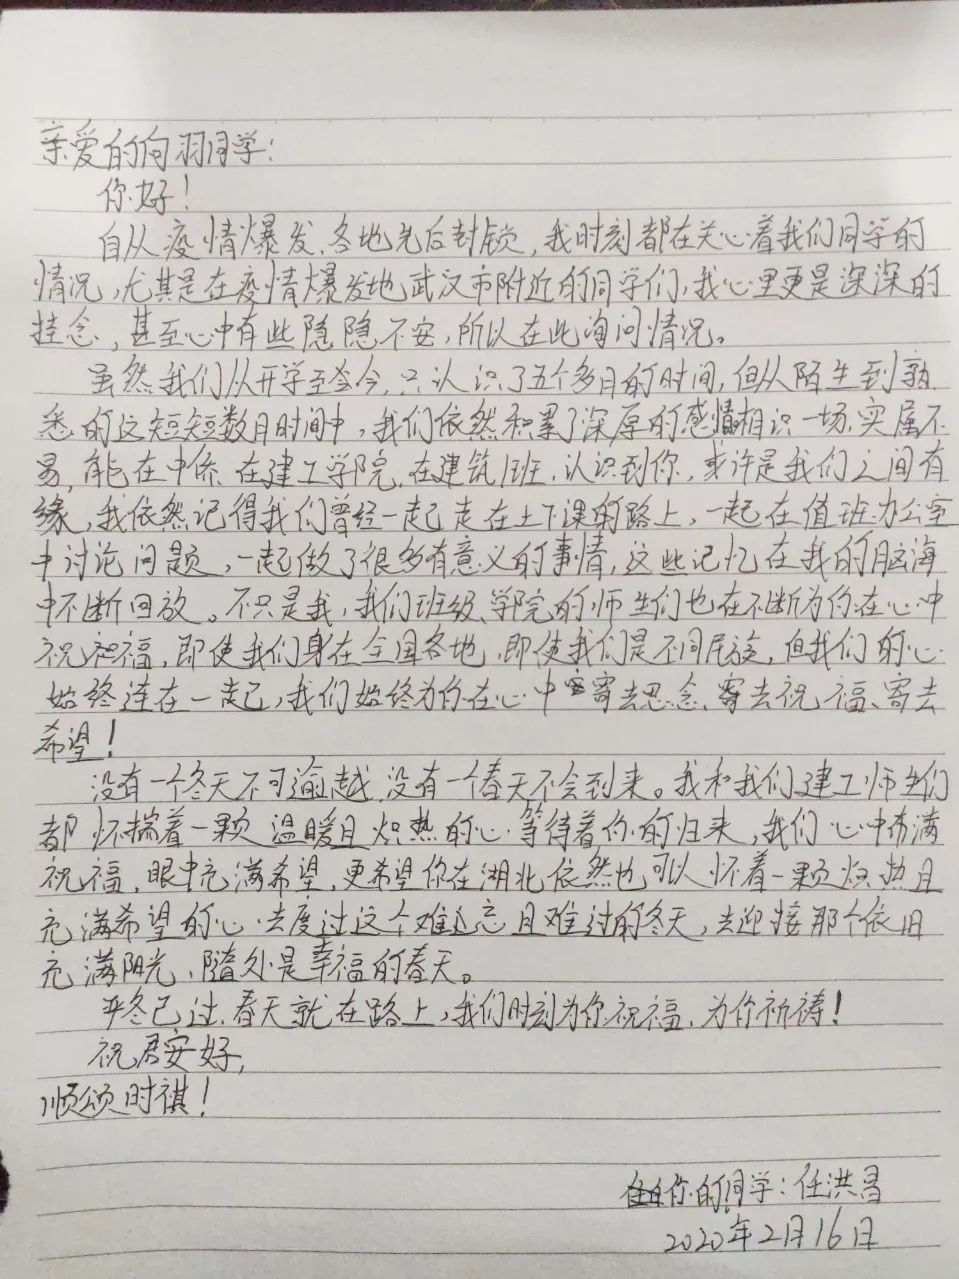 亲爱的向羽同学:
你好!
自从疫情爆发、各地先后封锁,我时刻都在关心着我们同学的
情况,尤其是在疫情爆发地武汉市附近的同学们,我心里更是深深的
挂念,甚至心中有些隐隐不安,所以在此询问情况。
虽然我们从开学至今,只认识了五个多月的时间,但从陌生到熟
悉的这短短数月时间中,我们依然积累了深厚的感情相识一场,实属不
易,能在中侨、在建工学院、在建筑1班、认识到你,或许是我们之间有
缘,我依然记得我们曾经一起走在上下课的路上,一起在值班办公室
中讨论问题,一起做了很多有意义的事情,这些记忆在我的脑海
中不断回放。不只是我,我们班级、学院的师生们也在不断为你在心中
祝福,即使我们身在全国各地,即使我们是不同民族,但我们的心
始终连在一起,我们始终为你在心中寄去思念、寄去祝福、寄去
希望!
没有一个冬天不可逾越,没有一个春天不会到来。我和我们建工师生们
都怀揣着一颗温暖且炽热的心等待着你的归来,我们心中布满
祝福,眼中充满希望,更希望你在湖北依然也可以怀着一颗炽热且
充满希望的心去度过这个难忘且难过的冬天,去迎接那个依旧
充满阳光,随处是幸福的春天。
严冬已过,春天就在路上,我们时刻为你祝福,为你祈祷!
祝君安好,
顺颂时祺!
你的同学:任洪昌
2020年2月16日